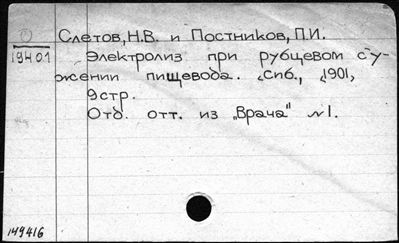 Слетов, Н.В. и Постников, П.И.
19401
Электролиз при рубцевом су-
жении пищевода. Спб., 1901,
9стр.
Отд. отт. из „Врача" №1.
149416